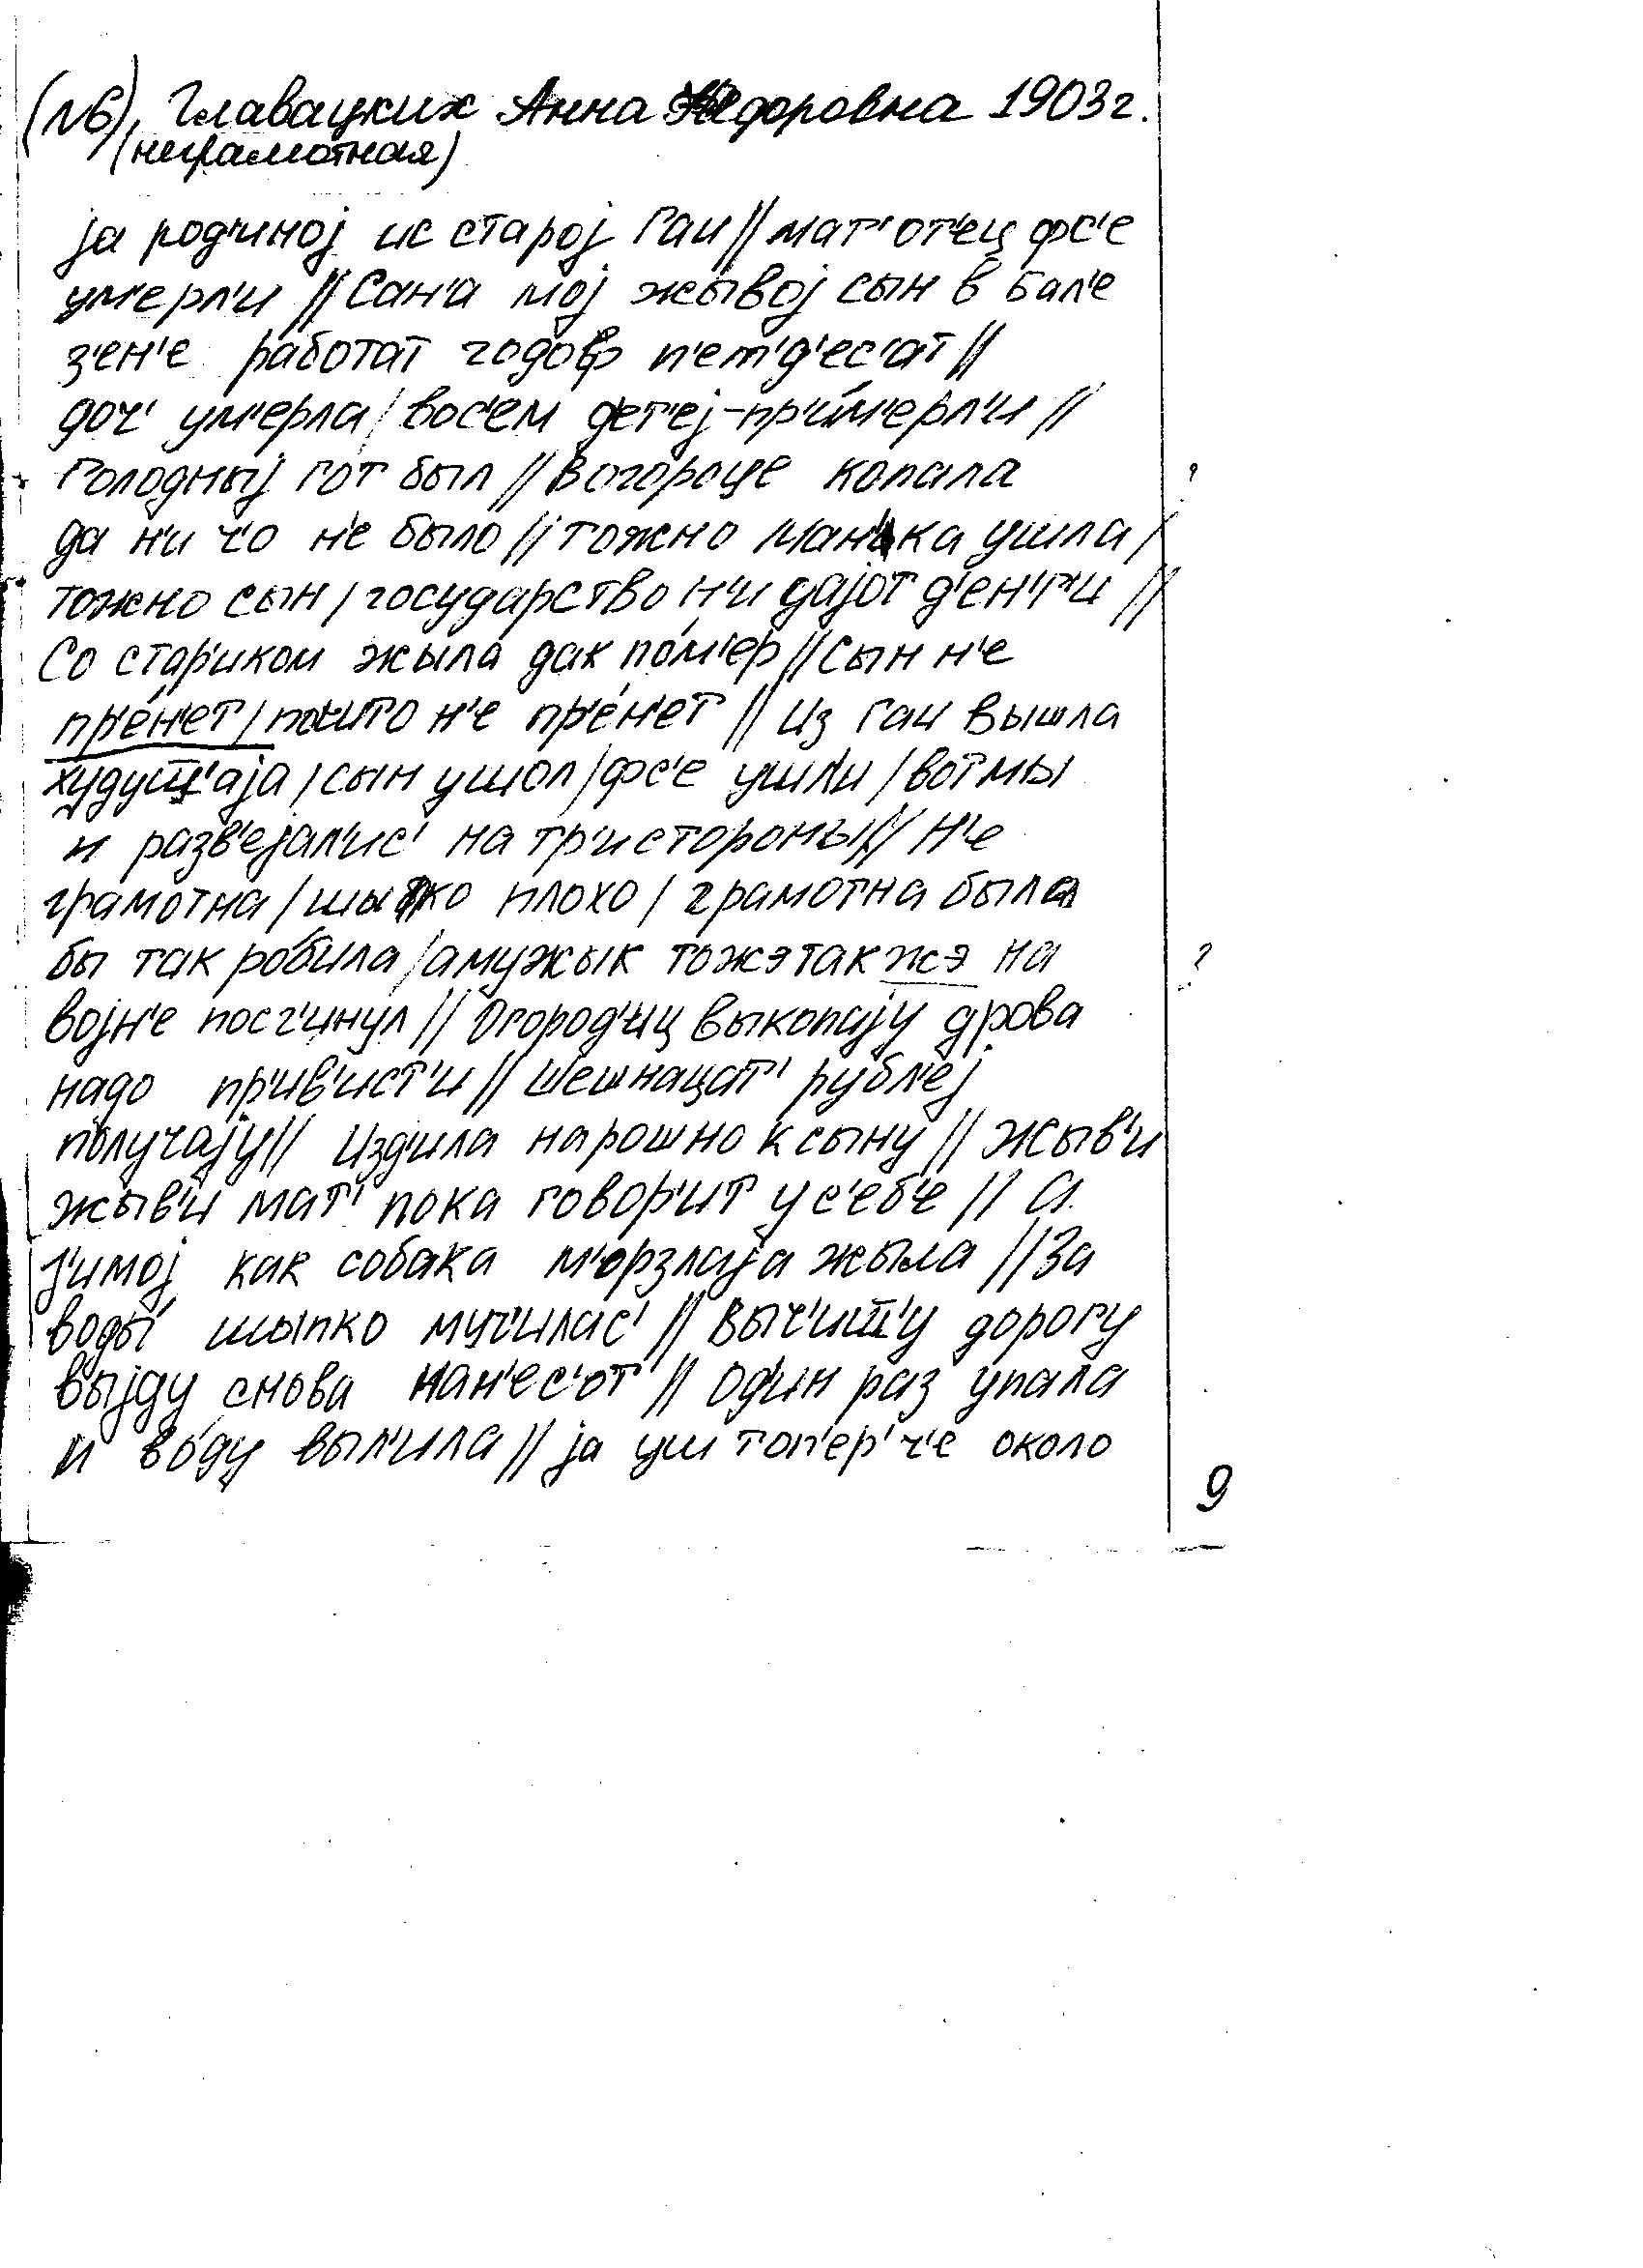 (N6), Главацких Анна Федоровна 1903 г.
(неграмотная)
ја род'иној ис старој Гаи // мат' от'ец фс'е
ум'ерл'и // Сан'а мој жывој сын в Бал'е
з'ен'е работат годоф п'ет'д'ес'ат //
доч' ум'ерла / вос'ем дет'еј - пр'им'ерл'и //
Голодныј гот был // В огороце копала ?
да н'и ч'о н'е было // тожно Ман'ка ушла /
тожно сын / государство н'и дајот д'ен'г'и //
Со стар'иком жыла дак пóм'ер // Сын н'е
пр'éн'ет / пошто н'е пр'éн'ет // Из гаи вышла
худушш'аја / сын ушол / фс'е ушли / вот мы
и разв'ејал'ис' на тр'и стороны // Н'е
грамотна / шыпко плохо / грамотна была
бы так рóбила / а мужык тожэ так жэ на ?
војн'е посг'инул // Огород'иц выкопају дрова
надо пр'ив'ист'и // шешнацат' рубл'еј
получају // Изд'ила нарошно к сыну // Жыв'и
жыв'и мат' пока говор'ит у с'еб'е // А
з'имој как собака м'орзлаја жыла // За
воды́ шыпко муч'илас' // Выч'ишш'у дорогу
выјду снова нан'ес'от // Од'ин раз упала
и вóду выл'ила // ја уш топ'ер'ч'е около
9